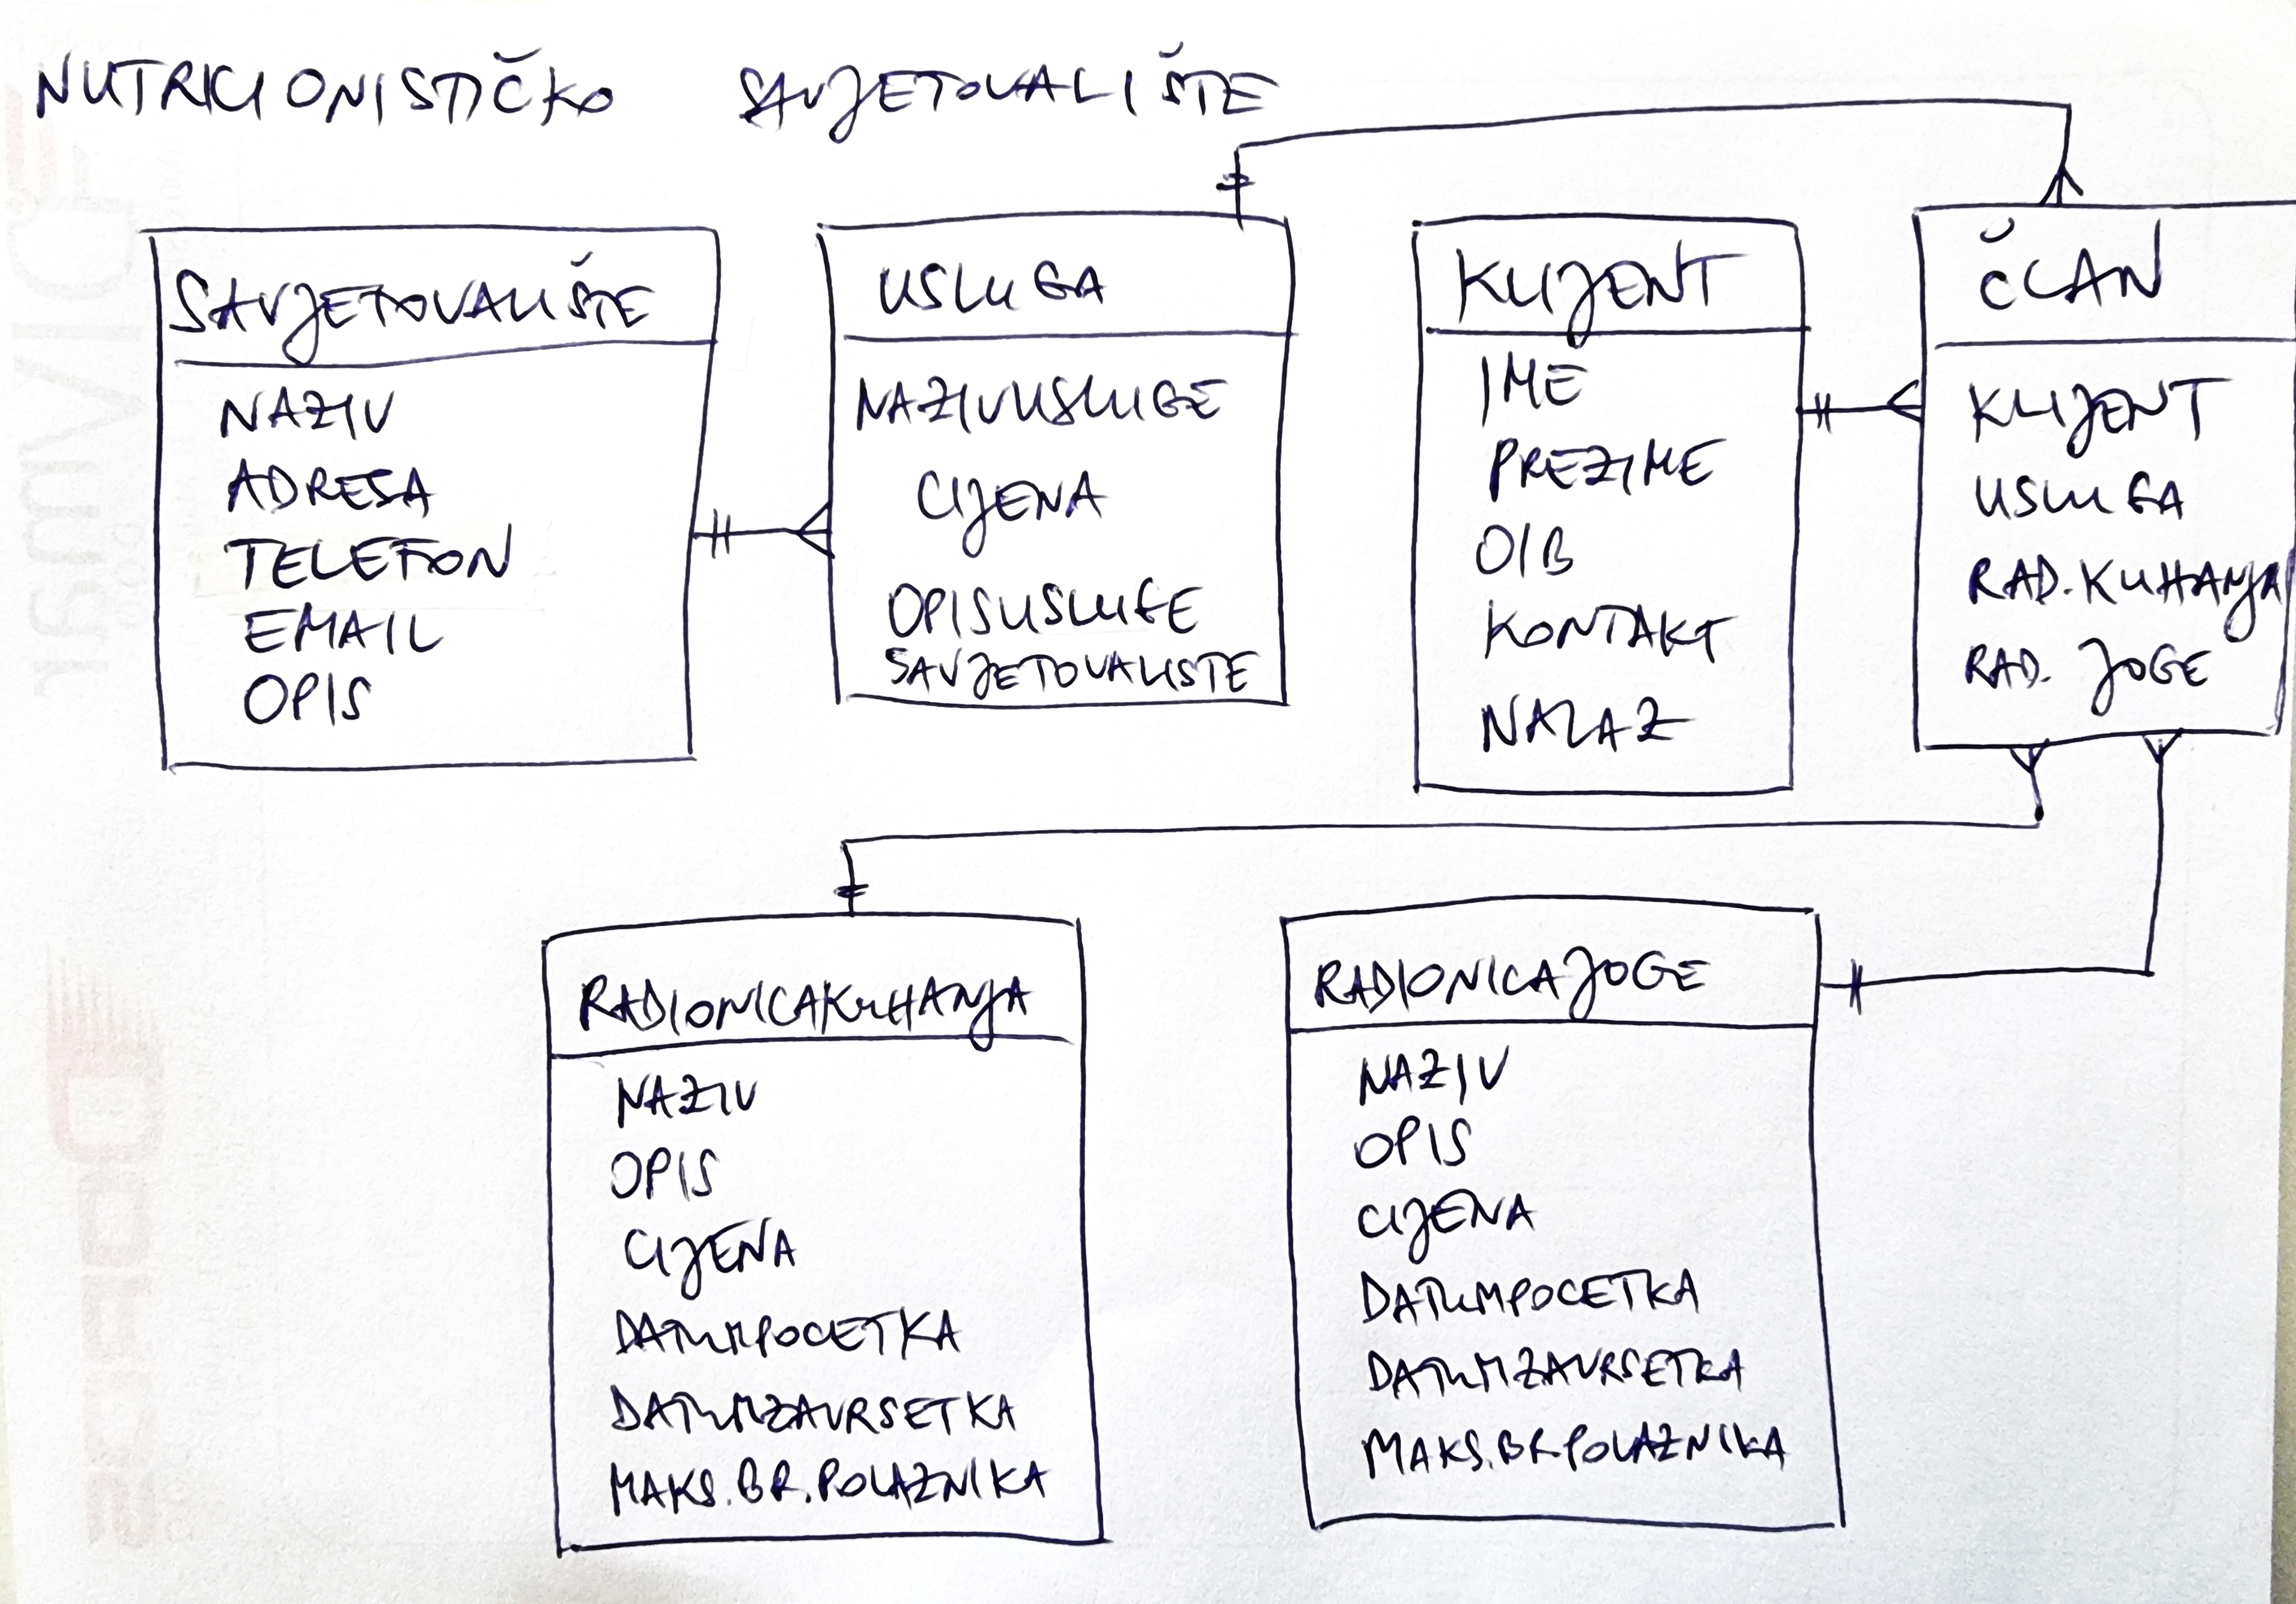 NUTRICIONISTIČKO SAVJETOVALIŠTE
SAVJETOVALIŠTE
NAZIV
ADRESA
TELEFON
EMAIL
OPIS
USLUGA
NAZIVUSLUGE
CIJENA
OPISUSLUGE
SAVJETOVALISTE
KLIJENT
IME
PREZIME
OIB
KONTAKT
NALAZ
ČLAN
KLIJENT
USLUGA
RAD.KUHANJA
RAD. JOGE
RADIONICAKUHANJA
NAZIV
OPIS
CIJENA
DATUMPOCETKA
DATUMZAVRSETKA
MAKS.BR.POLAZNIKA
RADIONICAJOGE
NAZIV
OPIS
CIJENA
DATUMPOCETKA
DATUMZAVRSETKA
MAKS.BR.POLAZNIKA